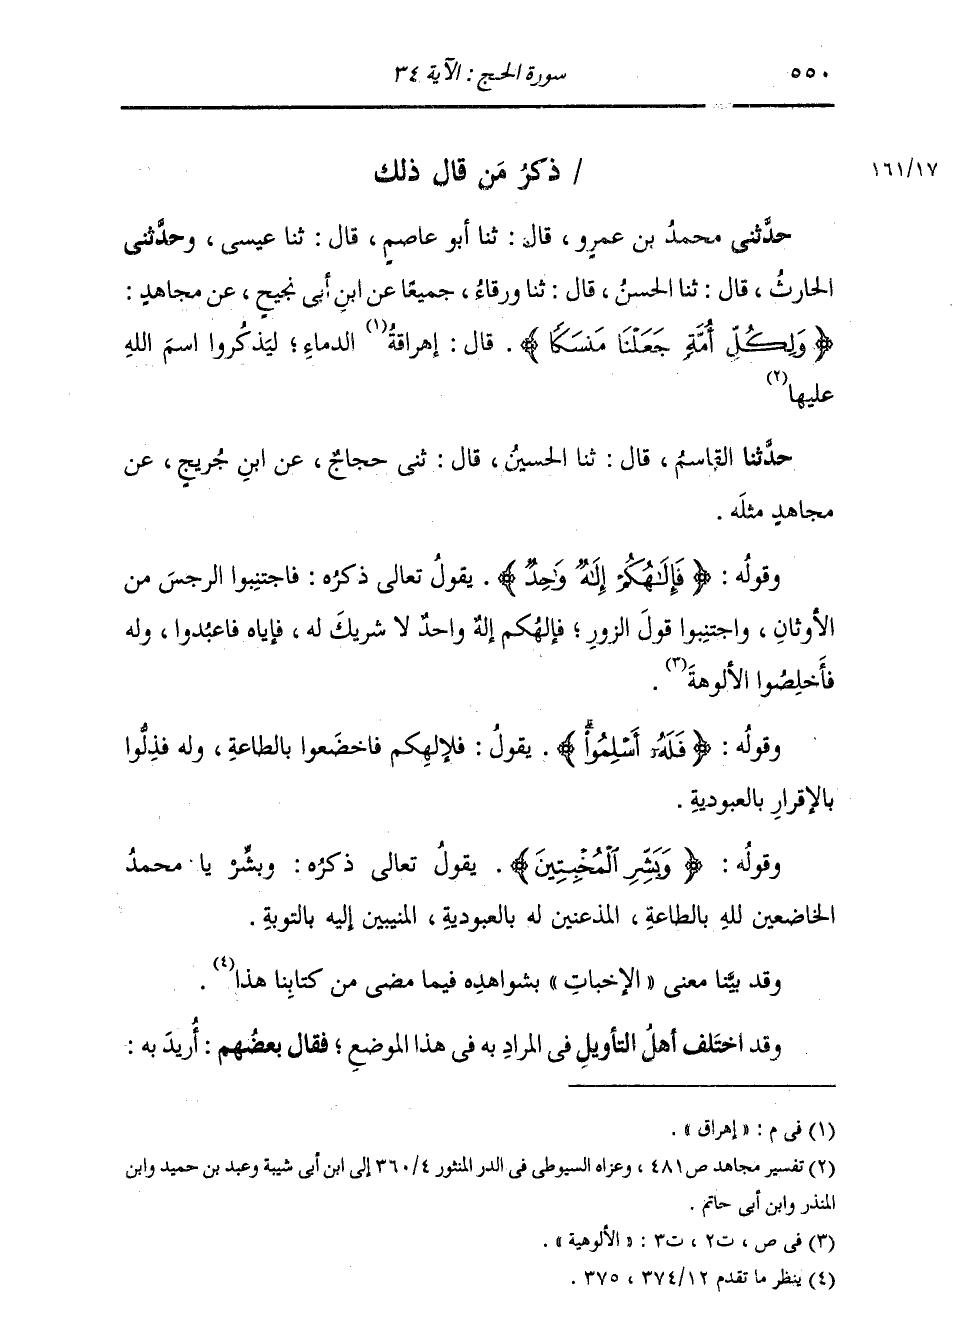 ٥٥٠ سورة الحج : الآية ٣٤
١٦١/١٧ / ذكرُ مَن قال ذلك
حدَّثنى محمدُ بن عمرٍو ، قال : ثنا أبو عاصمٍ ، قال : ثنا عيسى ، وحدَّثنى
الحارثُ ، قال : ثنا الحسنُ ، قال : ثنا ورقاءُ ، جميعًا عن ابنِ أبى نجيحٍ ، عن مجاهدٍ :
﴿ وَلِكُلِّ أُمَّةٍ جَعَلْنَا مَنسَكًا ﴾ . قال : إهراقةُ(١) الدماءِ ؛ ليَذكُروا اسمَ اللهِ
عليها(٢)
حدَّثنا القاسمُ ، قال : ثنا الحسينُ ، قال : ثنى حجاجٌ ، عن ابنِ جُريجٍ ، عن
مجاهدٍ مثلَه .
وقولُه : ﴿ فَإِلَٰهُكُمْ إِلَٰهٌ وَٰحِدٌ ﴾ . يقولُ تعالى ذكرُه : فاجتنِبوا الرجسَ من
الأوثانِ ، واجتنِبوا قولَ الزورِ ؛ فإلهُكم إلهٌ واحدٌ لا شريكَ له ، فإياه فاعبُدوا ، وله
فأَخلِصُوا الألوهةَ(٣) .
وقولُه : ﴿ فَلَهُۥ أَسْلِمُوا۟ ۗ ﴾ . يقولُ : فلإلهِكم فاخضَعوا بالطاعةِ ، وله فذِلُّوا
بالإقرارِ بالعبوديةِ .
وقولُه : ﴿ وَبَشِّرِ الْمُخْبِتِينَ ﴾ . يقولُ تعالى ذكرُه : وبشِّرْ يا محمدُ
الخاضعين للهِ بالطاعةِ ، المذعنين له بالعبوديةِ ، المنيبين إليه بالتوبةِ .
وقد بيَّنا معنى « الإخباتِ » بشواهدِه فيما مضى من كتابِنا هذا(٤) .
وقد اختَلف أهلُ التأويلِ فى المرادِ به فى هذا الموضعِ ؛ فقال بعضُهم : أُريدَ به :
(١) فى م : « إهراق » .
(٢) تفسير مجاهد ص٤٨١ ، وعزاه السيوطى فى الدر المنثور ٣٦٠/٤ إلى ابن أبى شيبة وعبد بن حميد وابن
المنذر وابن أبى حاتم .
(٣) فى ص ، ت٢ ، ت٣ : « الألوهية » .
(٤) ينظر ما تقدم ٣٧٤/١٢ ، ٣٧٥ .